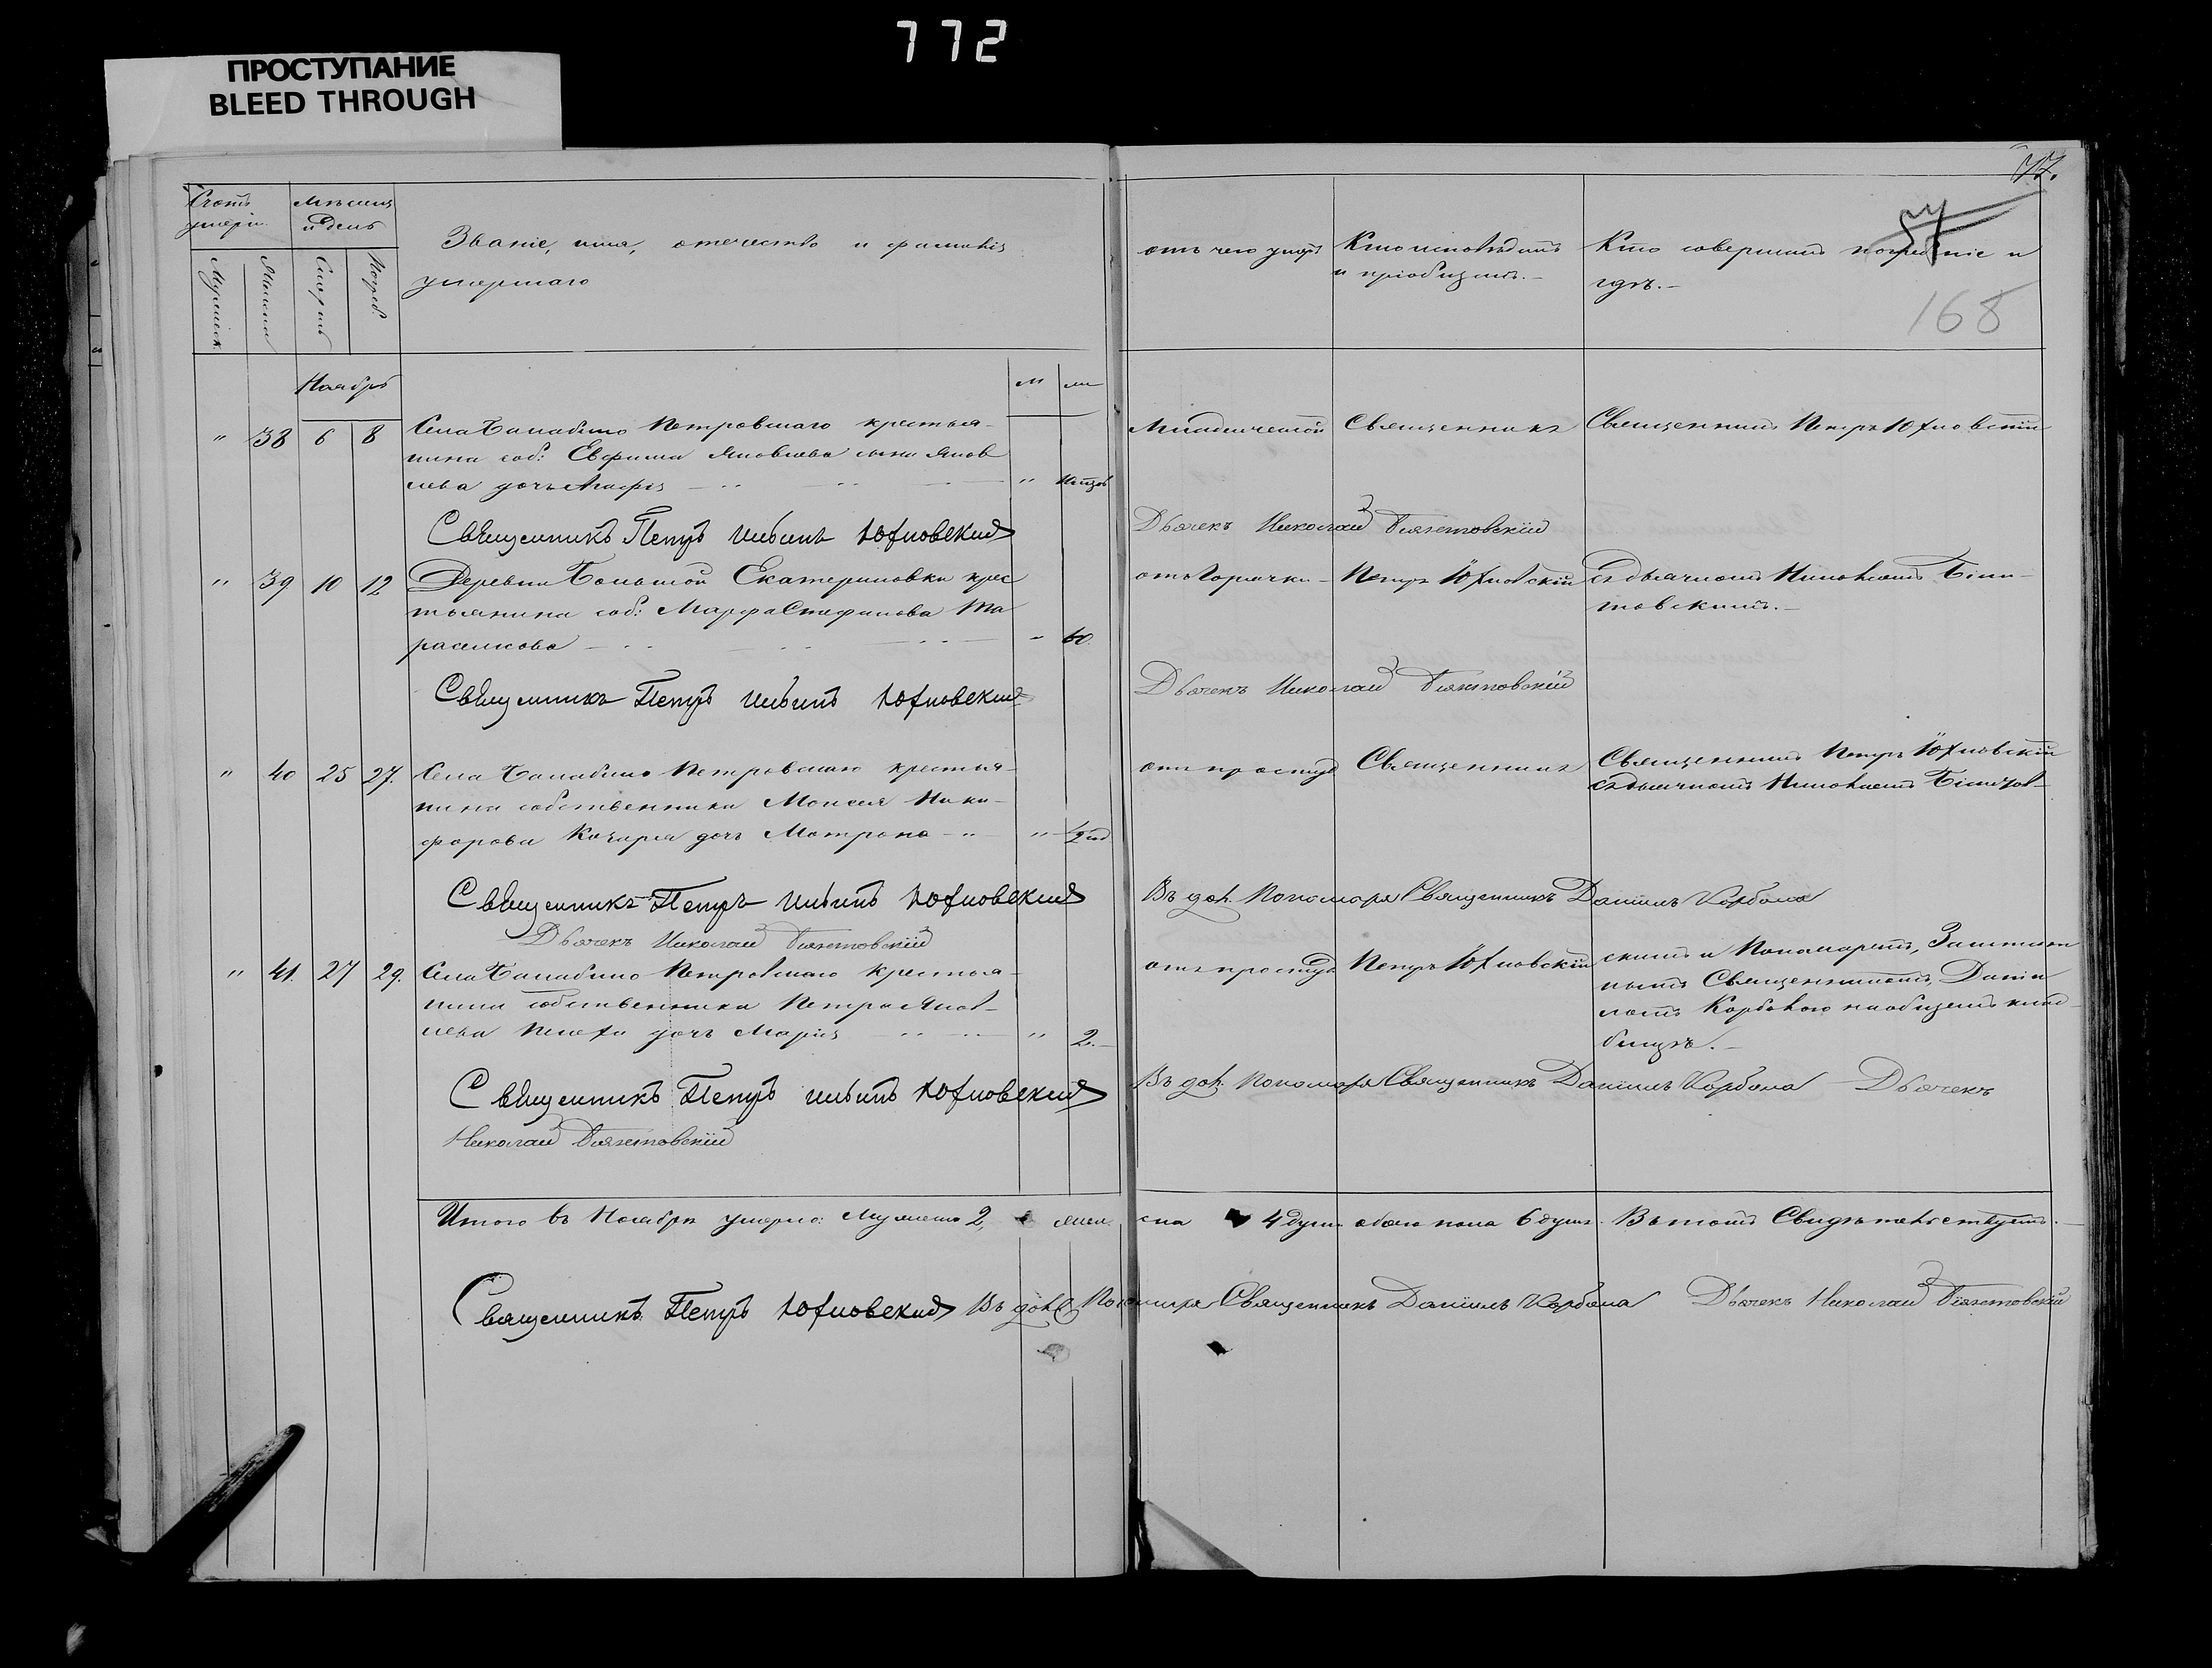 772
ПРОСТУПАНИЕ
BLEED THROUGH
77.
168
Счетъ умерш.
Мѣсяцъ и день
Мужеск.
Женска
Смерть
Погреб.
Званіе, имя, отечество и фамилія
умершаго
отъ чего умеръ
Кто исповѣдалъ
и пріобщалъ.–
Кто совершалъ погребеніе и
гдѣ.–
Ноябрь
м ж
" 38 6 8 Села Балабино Петровскаго крестья-
нина соб: Евфима Яковлева сына Яков
лева дочь Марфа "
Младенческой Священникъ Священникъ Петръ Юхновскій
Священникъ Петръ Юхновский
Дьячекъ Николай
" 39 10 12 Деревни Большой Екатериновки крес
тьянина соб: Марфа Стефанова Та
расенкова " 60.
отъ Горячки – Петръ Юхновскій съ дьячкомъ Николаемъ
товскимъ.–
Священникъ Петръ Юхновский
Дьячекъ Николай
" 40 25 27. Села Балабино Петровскаго крестья-
нина собственника Моисея Ники-
форова Кочарга дочь Матрона " "
отъ простуд Священникъ Священникъ Петръ Юхновскій
съ дьячкомъ Николаемъ
Священникъ Петръ Юхновский
Въ дол. Пономаря Священникъ Даніилъ Корбола
Дьячекъ Николай
" 41. 27 29. Села Балабино Петровскаго крестья-
нина собственника Петра Яков-
лева дочь Марія " 2.–
отъ простуд Петръ Юхновскій скимъ и Пономаремъ, Заштат
нымъ Священникомъ, Даніи
ломъ Корболою на общемъ клад-
бищѣ.–
Священникъ Петръ Юхновский
Въ дол: Пономаря Священникъ Даніилъ Корбола Дьячекъ
Николай
Итого въ Ноябрѣ умерло: Мужеска 2, женска 4 душ. обоего пола 6 душ. Въ томъ Свидѣтельствуемъ.
Священникъ Петръ Юхновский Въ дол. Пономаря Священникъ Даніилъ Корбола Дьячекъ Николай